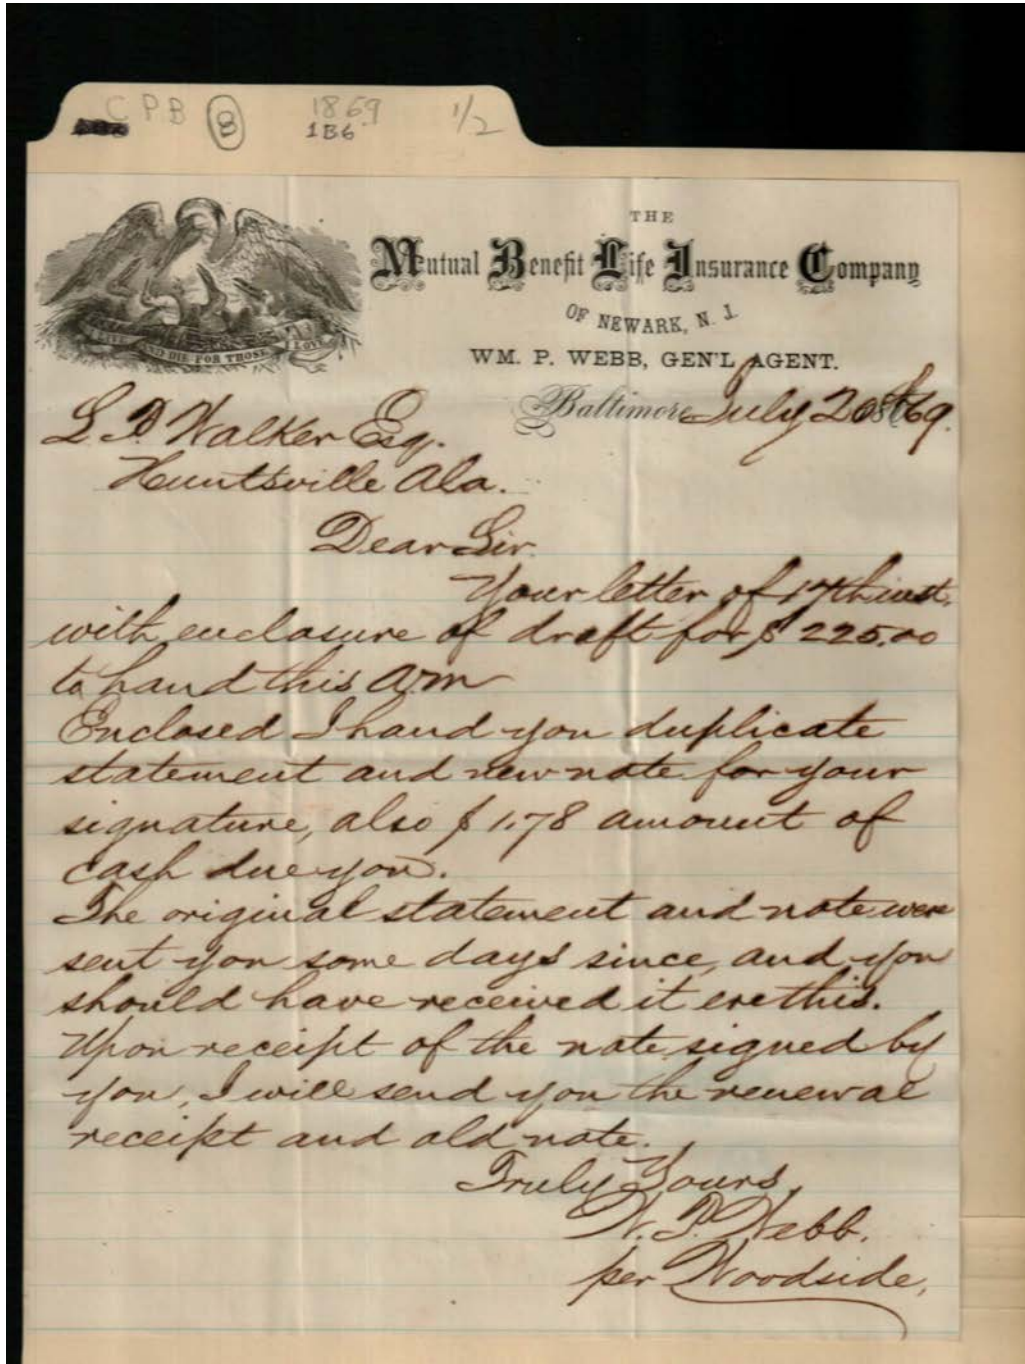 C P B 8 1869 1/2
1B6
THE
Mutual Benefit Life Insurance Company
OF NEWARK, N. J.
WM. P. WEBB, GEN'L AGENT.
LIVE AND DIE FOR THOSE I LOVE
Baltimore July 20th 1869.
L. P. Walker Esq.
Huntsville Ala.
Dear Sir.
Your letter of 17th inst.
with enclosure of draft for $225.00
to hand this AM
Enclosed I hand you duplicate
statement and new note for your
signature, also $1.78 amount of
cash due you.
The original statement and note were
sent you some days since, and you
should have received it ere this.
Upon receipt of the note signed by
you, I will send you the renewal
receipt and old note.
Truly Yours,
W. P. Webb.
per Woodside,